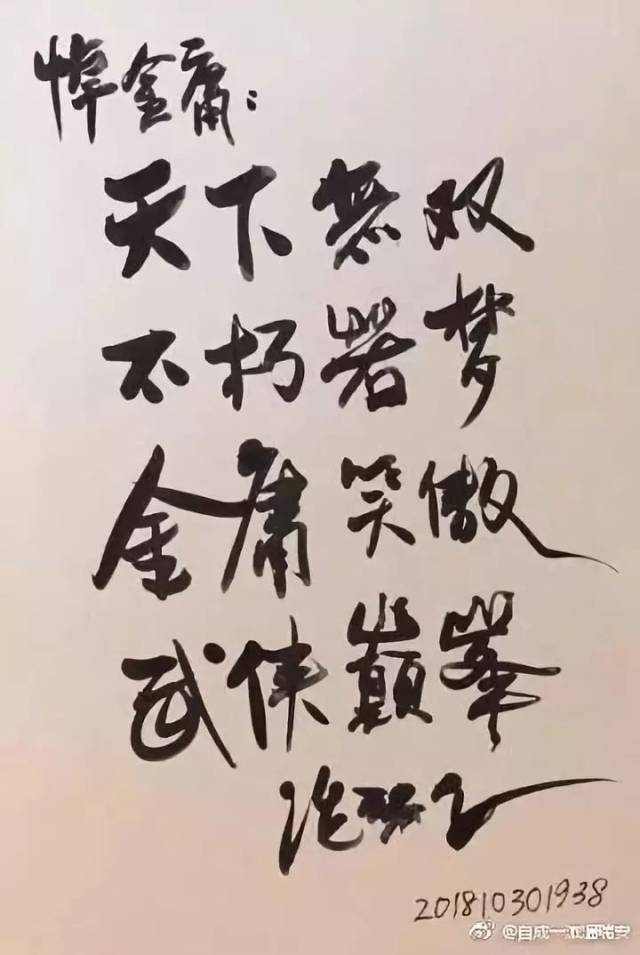 悼金庸：
天下無双
不朽若梦
金庸笑傲
武侠巔峯
201810301938
@自成一派温瑞安